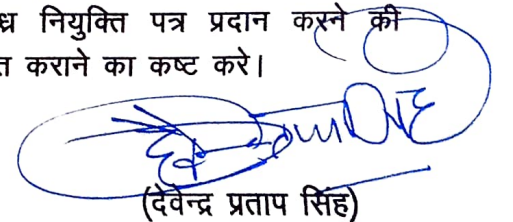 ध्र नियुक्ति पत्र प्रदान करने की
त कराने का कष्ट करे।
(देवेन्द्र प्रताप सिंह)